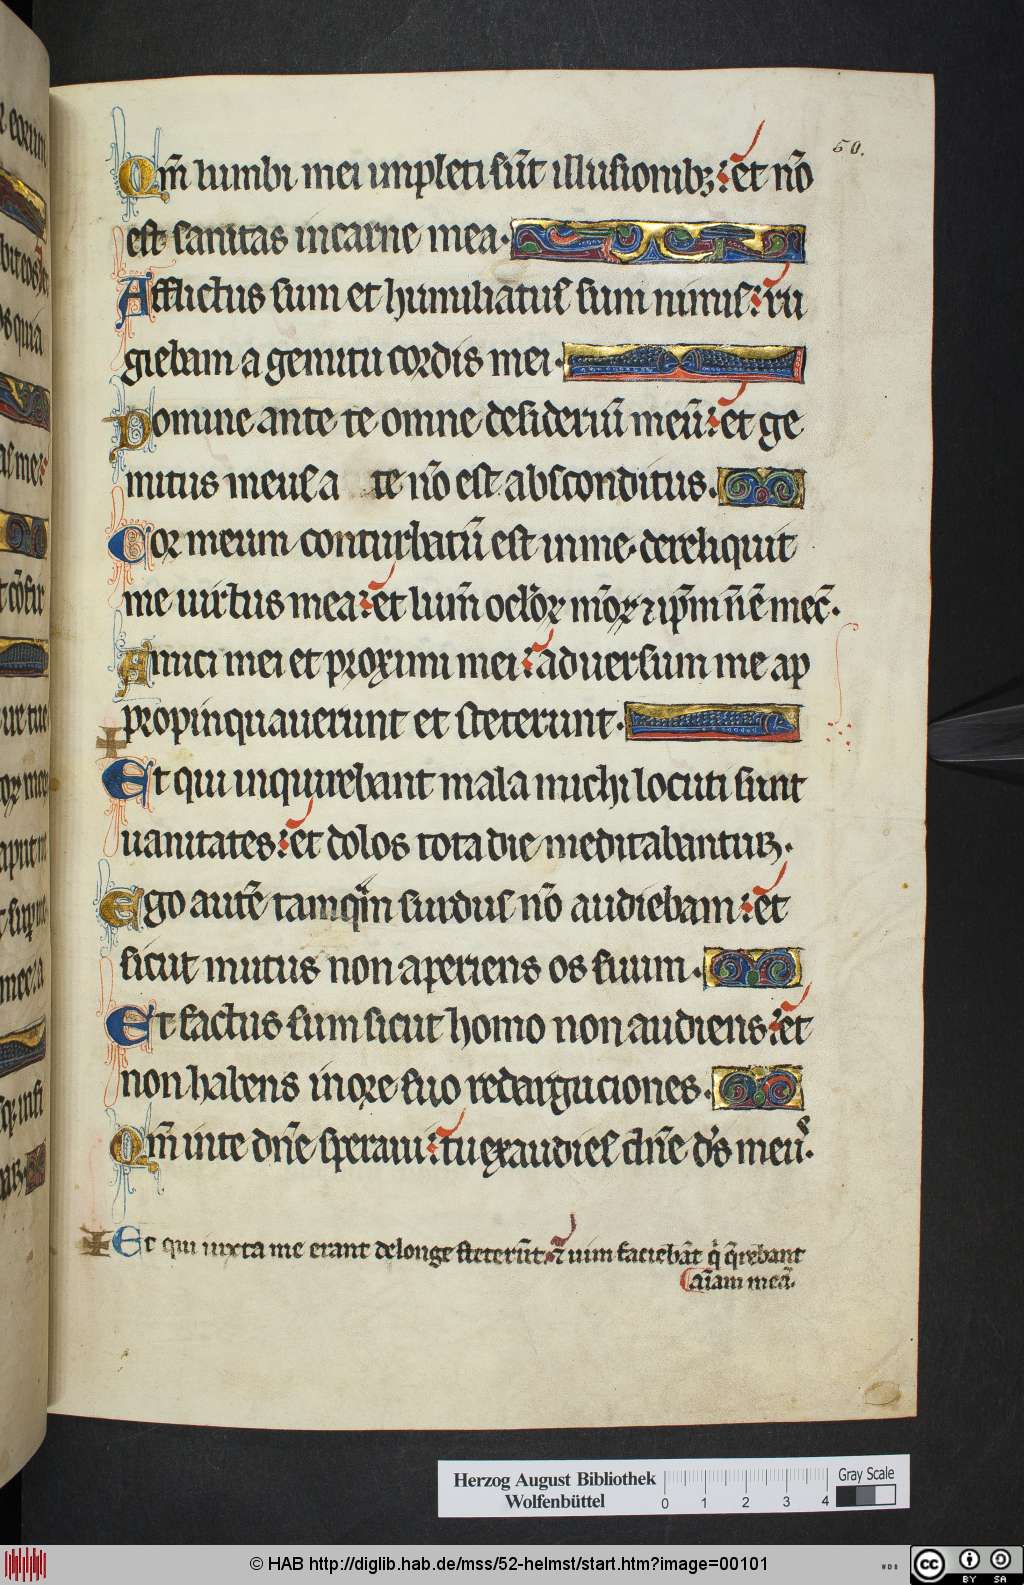 50.
Qm̄ lumbi mei impleti sūt illusionibꝫ: et nō
est sanitas incarne mea.
Afflictus sum et humiliatus sum nimis: ru
giebam a gemitu cordis mei.
Domine ante te omne desideriū meū: et ge
mitus meus a te nō est absconditus.
Cor meum conturbatū est inme. dereliquit
me uirtus mea: et lum̄ oclo̵ꝝ mōꝝ ⁊ ip̄m n̄ ē mec̄.
Amici mei et proximi mei: aduersum me ap
propinquauerunt et steterunt.
Et qui inquirebant mala michi locuti sunt
uanitates: et dolos tota die meditabantur.
Ego autē tamqm̄ surdus nō audiebam: et
sicut mutus non aperiens os suum.
Et factus sum sicut homo non audiens: et
non habens inore suo redarguciones.
Qm̄ inte dn̄e speraui: tu exaudies dn̄e ds̄ meus.
Et qui iuxta me erant delonge steterūt: ⁊ uim faciebāt qͥ qr̄ebant
aīam meā.
Herzog August Bibliothek
Wolfenbüttel
Gray Scale
0 1 2 3 4
© HAB http://diglib.hab.de/mss/52-helmst/start.htm?image=00101
WDB
cc BY SA